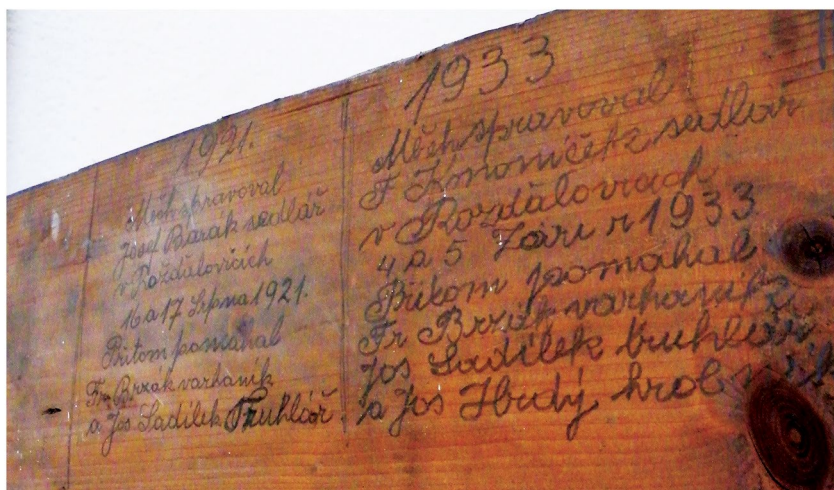 1921.
Měch spravoval
Josef Barák sedlář
v Rožďalovicích
16 a 17 Srpna 1921.
Přitom pomahal
Fr Brzák varhaník
a Jos Sadílek Truhlář
1933
Měch spravoval
F Konomíček sedlář
v Rozďalovicích
4 a 5 Záři r 1933
Přitom pomahal
Fr Brzák varhaník
Jos Sadilek truhlář
a Jos Hrdý hrobník